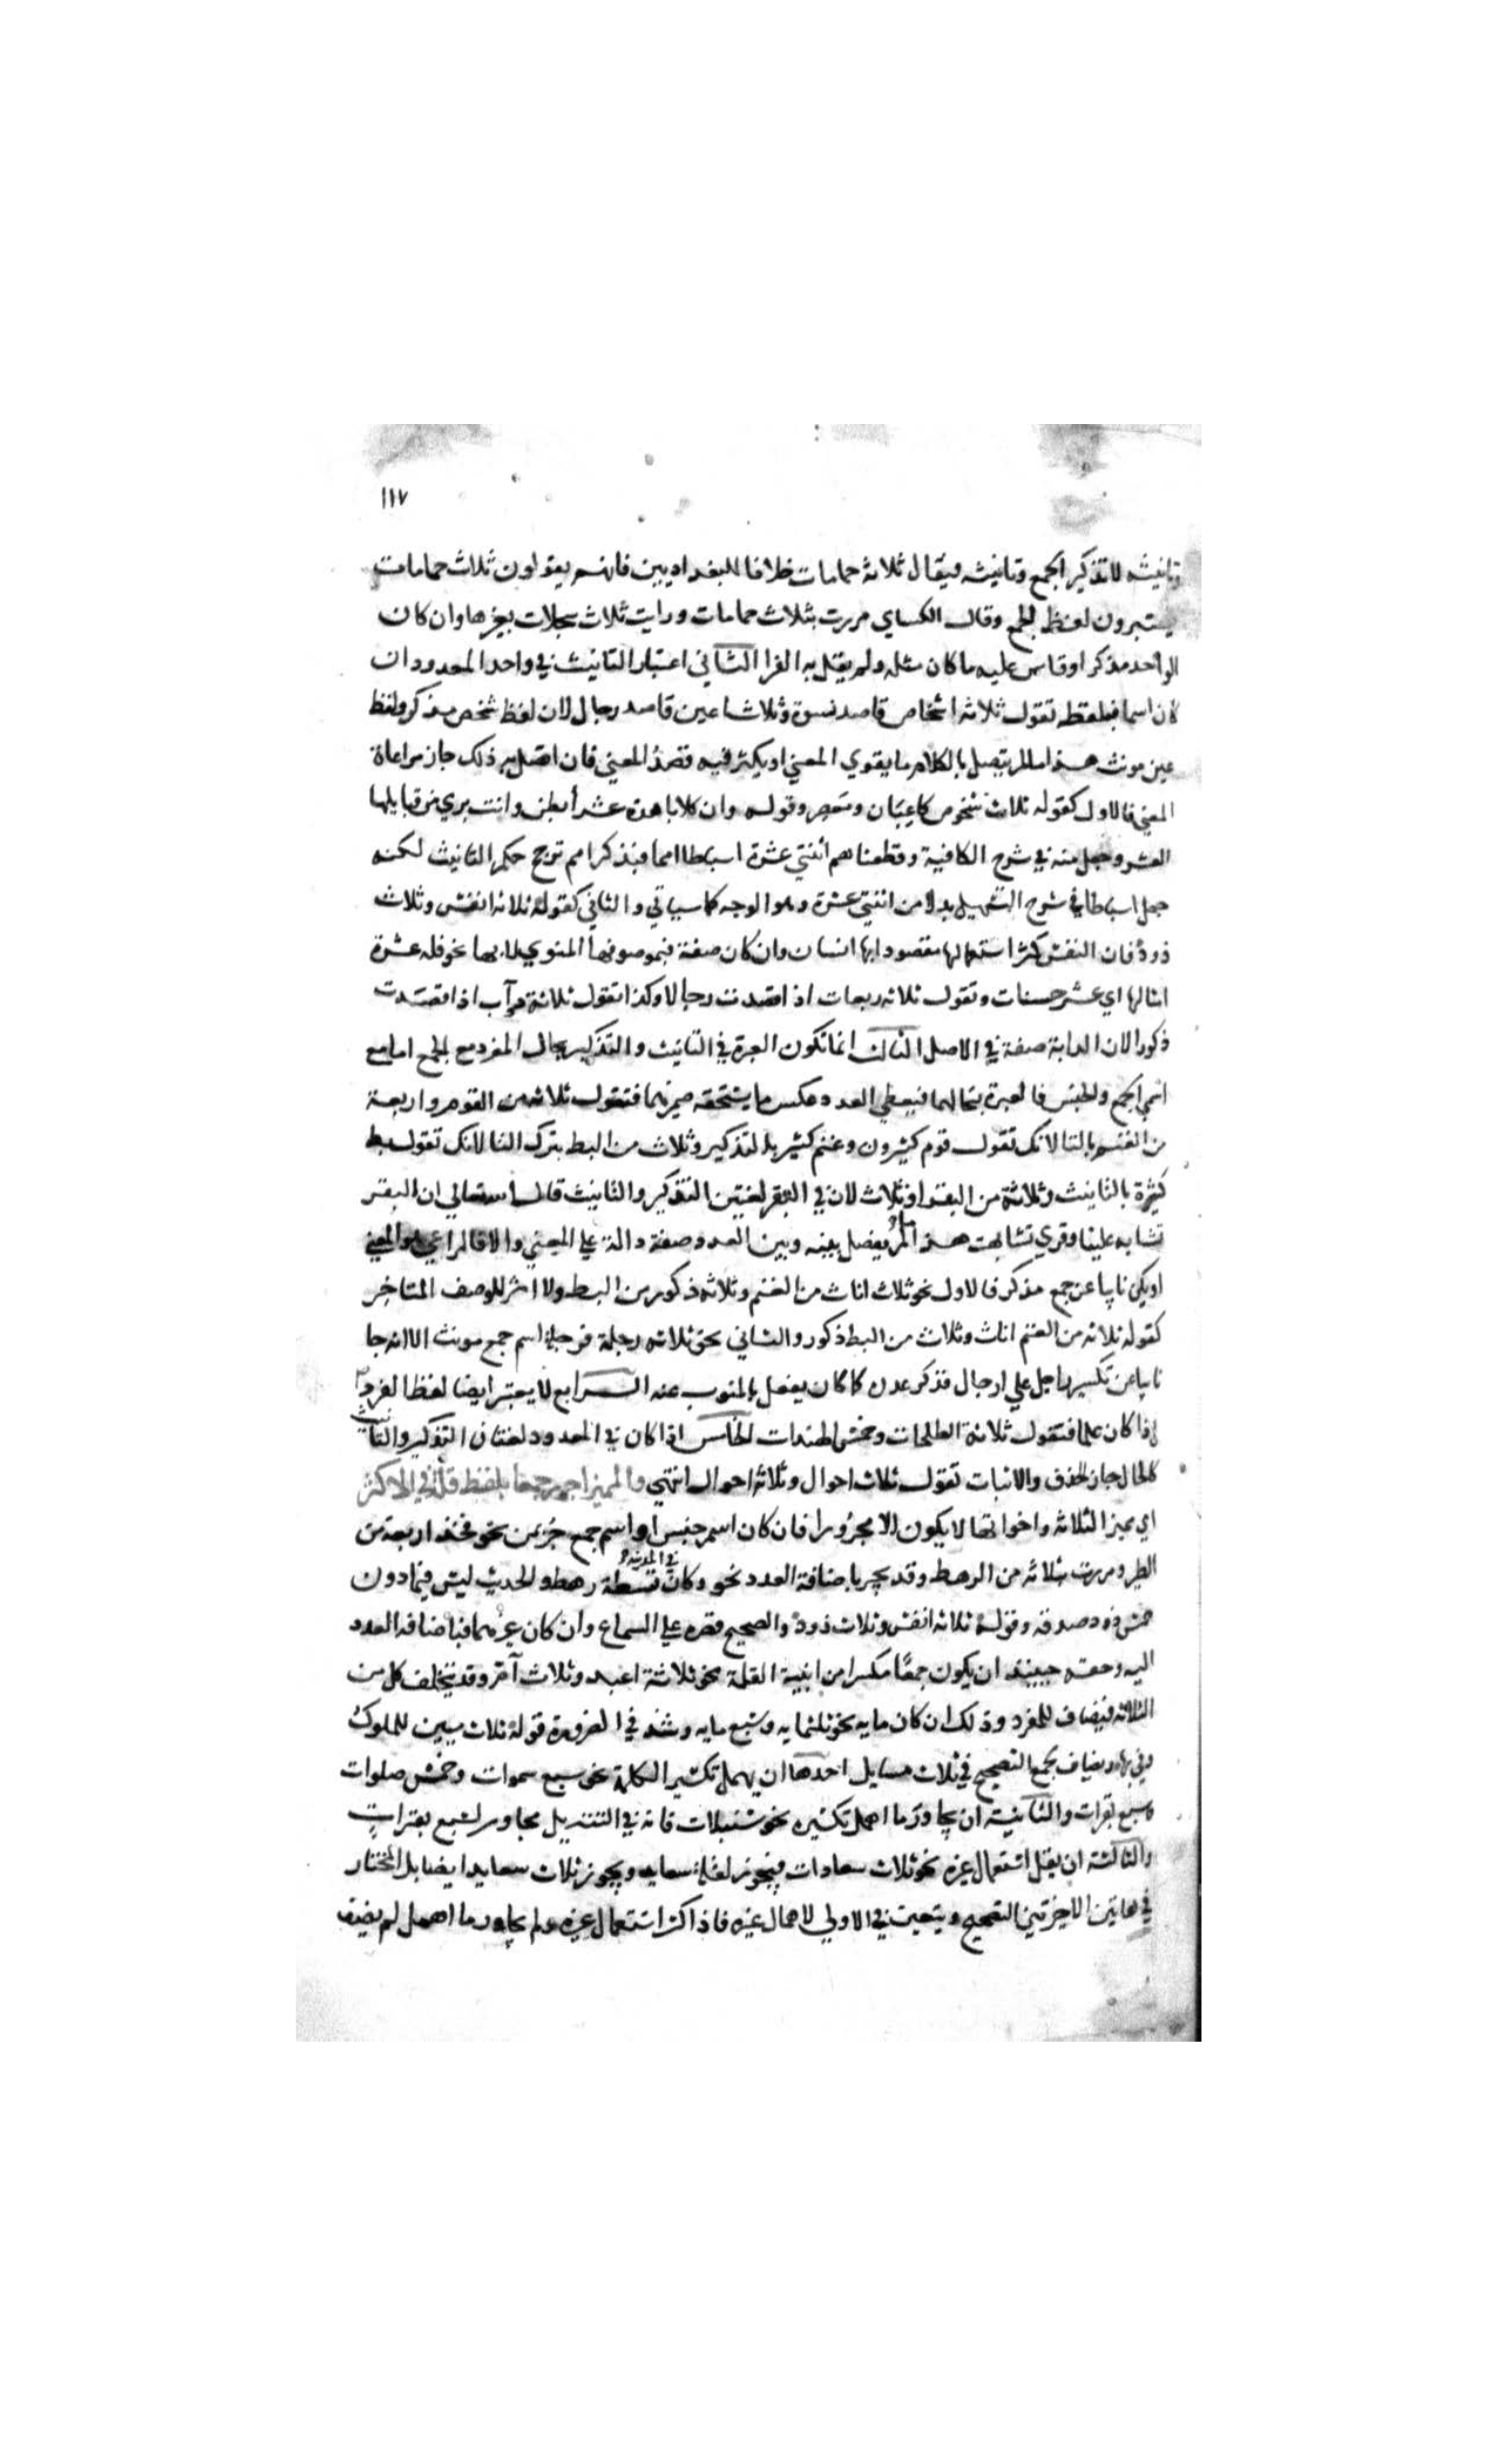 ١١٧
وتانيثه لا تذكير الجمع وتانيثه فيقال ثلاثة حمامات خلافا للبغداديين فانهم يقولون ثلاث حمامات
يعتبرون لفظ الجمع وقال الكساي مررت بثلاث حمامات ورايت ثلاث سجلات بغير ها وان كان
الواحد مذكرا وقاس عليه ما كان مثله ولم يقل به الفرا الثاني اعتبار التانيث في واحد المعدود ان
كان اسما فبلفظه تقول ثلاثة اشخاص قاصد نسوة وثلاث اعين قاصد رجال لان لفظ شخص مذكر ولفظ
عين مونث هذا ما لم يتصل بالكلام ما يقوي المعني او يكثر فيه قصد المعني فان اتصل به ذلك جاز مراعاة
المعني فالاول كقوله ثلاث شخوص كاعبان ومعصر وقوله وان كلابا هذه عشر أبطن وانت بري من قبايلها
العشر وجعل منه في شرح الكافية وقطعناهم اثنتي عشرة اسباطا امما فبذكر امم ترجح حكم التانيث لكنه
جعل اسباطا في شرح التسهيل بدلا من اثنتي عشرة وهو الوجه كما سياتي والثاني كقوله ثلاثة انفس وثلاث
ذود فان النفس كثر استعمالها مقصودا بها انسان وان كان صفة فبموصوفها المنوي لا بها نحو فله عشرة
امثالها اي عشر حسنات وتقول ثلاثة ربعات اذا قصدت رجالا وكذا تقول ثلاثة دواب اذا قصدت
ذكورا لان الدابة صفة في الاصل الثالث انما تكون العبرة في التانيث والتذكير بحال المفرد مع الجمع اما مع
اسمي الجمع والجنس فالعبرة بحالهما فيعطي العدد عكس ما يستحقه ضميرهما فتقول ثلاثة من القوم واربعة
من الغنم بالتا لانك تقول قوم كثيرون وغنم كثير بالتذكير وثلاث من البط بترك التا لانك تقول بط
كثيرة بالتانيث وثلاثة من البقر او ثلاث لان في البقر لغتين التذكير والتانيث قال الله تعالي ان البقر
تشابه علينا وقري تشابهت هذا ما لم يفصل بينه وبين العدد صفة دالة علي المعني والا فالمراعي هو المعني
او يكن نايبا عن جمع مذكر فالاول نحو ثلاث اناث من الغنم وثلاثة ذكور من البط ولا اثر للوصف المتاخر
كقوله ثلاثة من الغنم اناث وثلاث من البط ذكور والثاني نحو ثلاثة رجلة فرجلة اسم جمع مونث الا انه جا
نايبا عن تكسير راجل علي ارجال فذكر عدده كما كان يفعل بالمنوب عنه الرابع لا يعتبر ايضا لفظ المفرد
اذا كان علما فتقول ثلاثة الطلحات وخمس الهندات الخامس اذا كان في المعدود لغتان التذكير والتانيث
كالحال جاز الحذف والاثبات تقول ثلاث احوال وثلاثة احوال انتهي والمميز اجرر جمعا بلفظ قلة في الاكثر
اي مميز الثلاثة واخواتها لا يكون الا مجرورا فان كان اسم جنس او اسم جمع جر بمن نحو فخذ اربعة من
الطير ومررت بثلاثة من الرهط وقد يجر باضافة العدد نحو وكان في المدينة تسعة رهط والحديث ليس فيما دون
خمس ذود صدقة وقوله ثلاثة انفس وثلاث ذود والصحيح قصره علي السماع وان كان غيرهما فباضافة العدد
اليه وحقه حينيذ ان يكون جمعا مكسرا من ابنية القلة نحو ثلاثة اعبد وثلاث آم وقد يتخلف كل من
الثلاثة فيضاف للمفرد وذلك ان كان ماية نحو ثلثماية وسبع ماية وشذ في الضرورة قوله ثلاث ميين للملوك
وفي بها ويضاف لجمع التصحيح في ثلاث مسايل احدها ان يهمل تكسير الكلمة نحو سبع سموات وخمس صلوات
وسبع بقرات والثانية ان يجاور ما اهمل تكسيره نحو سنبلات فانه في التنزيل مجاور لسبع بقرات
والثالثة ان يقل استعمال غيره نحو ثلاث سعادات فيجوز لقلة سعايد ويجوز ثلاث سعايد ايضا بل المختار
في هاتين الاخيرتين التصحيح ويتعين في الاولي لاهمال غيره فاذا كثر استعمال غيره ولم يجاور ما اهمل لم يضف